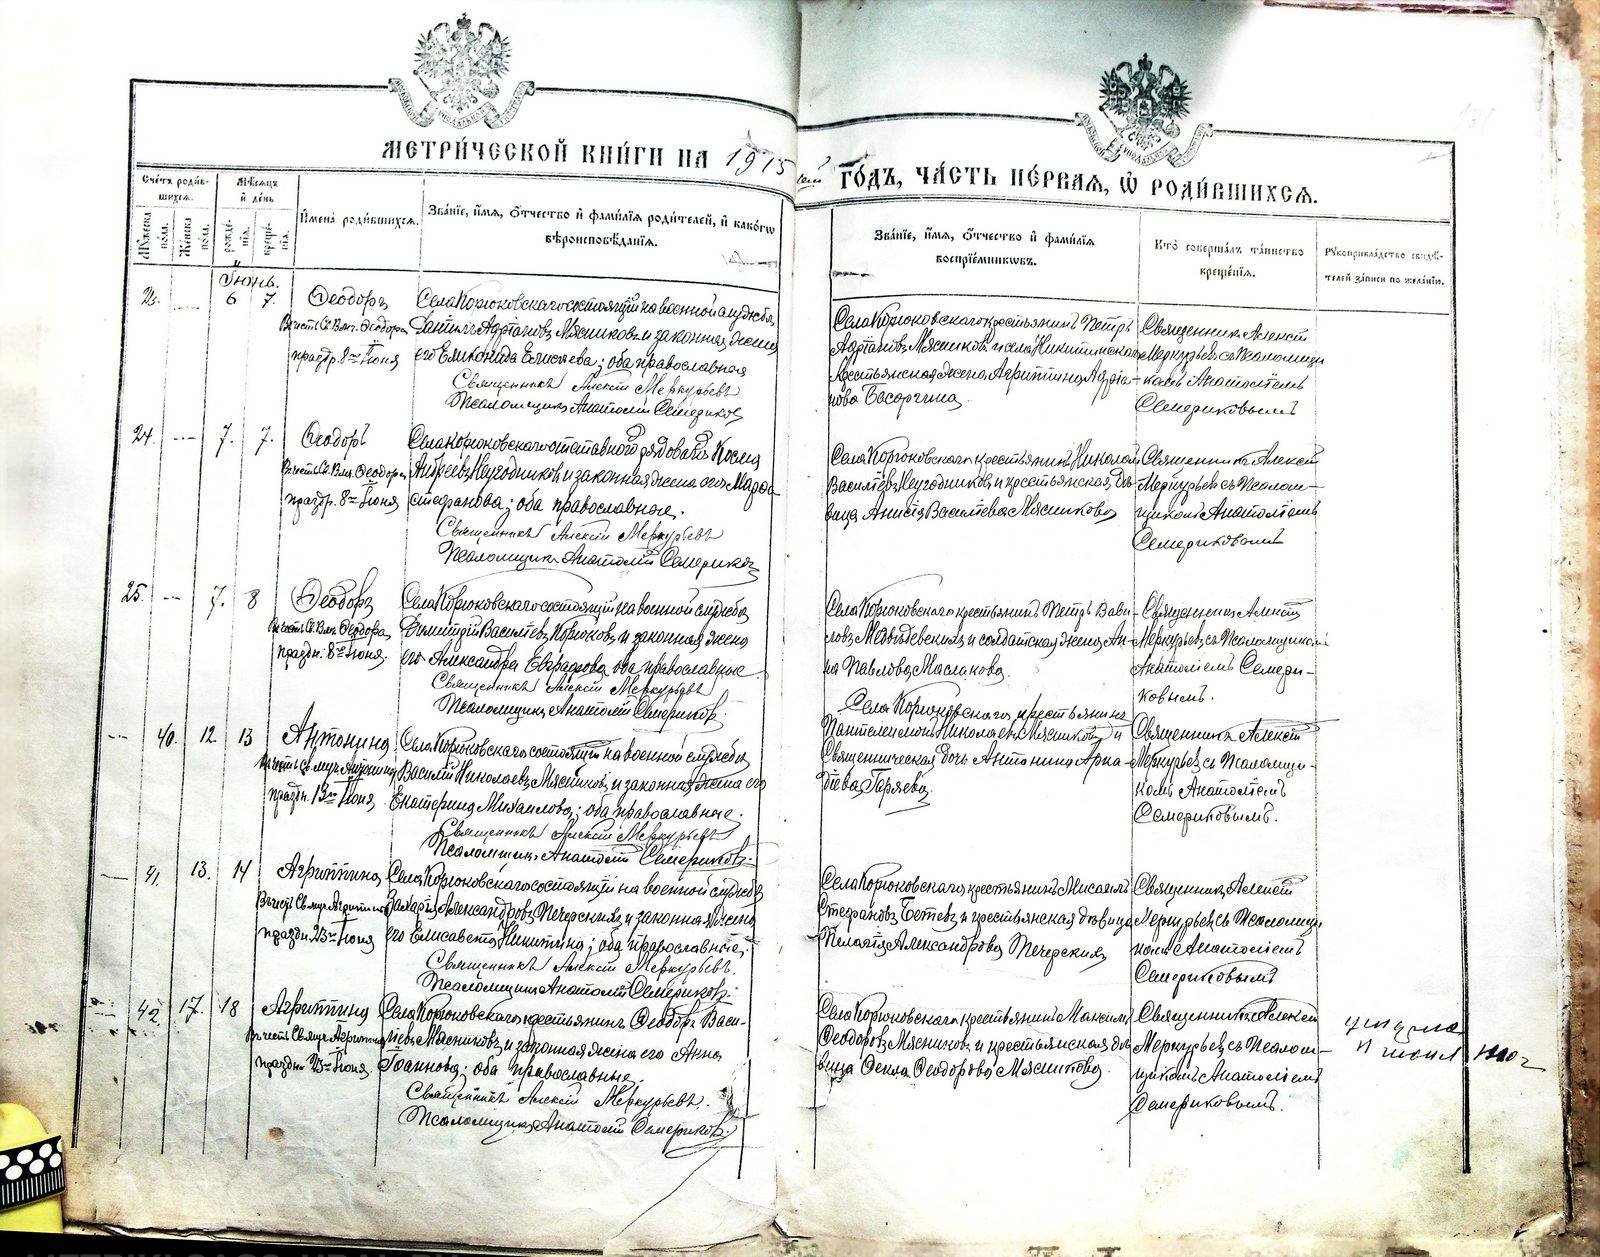 МЕТРИ́ЧЕСКОЙ КНИ́ГИ НА 1915 ГО́ДЪ, ЧА́СТЬ ПЕ́РВАЯ, Ѡ РОДИ́ВШИХСѦ.
Сче́тъ роди́в-
шихсѧ.
Мѣ́сѧцъ
и҆ де́нь
Мꙋ́жеска по́ла.
Же́нска по́ла.
рожде́-
нїѧ.
креще́-
нїѧ.
И҆мена̀ роди́вшихсѧ.
Зва́нїе, и҆́мѧ, ѻ҆́тчество и҆ фами́лїѧ роди́телей, и҆ како́гѡ
вѣроисповѣ́данїѧ.
Зва́нїе, и҆́мѧ, ѻ҆́тчество и҆ фами́лїѧ
воспрїе́мникѡвъ.
Кто̀ соверша́лъ та́инство
креще́нїѧ.
Рꙋкоприкла́дство свидѣ́-
телей за́писи по жела́нїю.
Іюнь.
6 7.
Ѳеодоръ
Въ честь Св. Влм. Ѳеодора
праздн. 8го Іюня
Села Корюковскаго состоящій на военной службѣ
Даніилъ Адріановъ Мясниковъ и законная жена
его Еликонида Елисѣева; оба православная
Священникъ Алексій Меркурьевъ
Псаломщикъ Анатолій Семериковъ
Села Корюковскаго крестьянинъ Петръ
Адріановъ Мясниковъ и села Никитинскаго
крестьянская жена Агриппина Адріа-
нова
Священникъ Алексій
Меркурьевъ съ псаломщи-
комъ Анатоліемъ
Семериковымъ
24. --- 7. 7.
Ѳеодоръ
Въ честь Св. Влм. Ѳеодора
праздн. 8го Іюня
Села Корюковскаго отставной рядовой Косма
Андреевъ Неугодниковъ и законная жена его Марѳа
Стефанова; оба православные.
Священникъ Алексій Меркурьевъ
Псаломщикъ Анатолій Семериковъ
Села Корюковскаго крестьянинъ Николай
Васильевъ Неугодниковъ и крестьянская дѣ-
вица Анисія Васильева Мясникова
Священникъ Алексій
Меркурьевъ съ псалом-
щикомъ Анатоліемъ
Семериковымъ
25. --- 7. 8
Ѳеодоръ
Въ честь Св. Влм. Ѳеодора
праздн. 8го Іюня.
Села Корюковскаго состоящій на военной службѣ
Димитрій Васильевъ Корюковъ и законная жена
его Александра Евграфова оба православные
Священникъ Алексій Меркурьевъ
Псаломщикъ Анатолій Семериковъ.
Села Корюковскаго крестьянинъ Петръ Вави-
ловъ Медвѣдевскихъ и солдатская жена Ан-
на Павлова Масланова.
Священникъ Алексій
Меркурьевъ съ Псаломщикомъ
Анатоліемъ Семери-
ковымъ.
--- 40. 12 13
Антонина
праздн. 13го Іюня
Села Корюковскаго состоящій на военной службѣ
Василій Николаевъ Мясниковъ и законная жена его
Екатерина Михаилова; оба православные.
Священникъ Алексій Меркурьевъ
Псаломщикъ Анатолій Семериковъ.
Села Корюковскаго крестьянинъ
Пантелеимонъ Николаевъ Мясниковъ и
Священническая дочь Антонина Арка-
діева Горяева.
Священникъ Алексій
Меркурьевъ съ Псаломщи-
комъ Анатоліемъ
Семериковымъ.
--- 41. 13. 14
Агриппина
праздн. 23го Іюня
Села Корюковскаго состоящій на военной службѣ
Захарія Александровъ Печерскихъ и законная жена
его Елисавета Никитина; оба православные.
Священникъ Алексій Меркурьевъ.
Псаломщикъ Анатолій Семериковъ.
Села Корюковскаго крестьянинъ Мисаилъ
Стефановъ Бетевъ и крестьянская дѣвица
Пелагія Александрова Печерскихъ
Священникъ Алексій
Меркурьевъ съ Псаломщи-
комъ Анатоліемъ
Семериковымъ
--- 42. 17. 18
Агриппина
праздн. 23го Іюня.
Села Корюковскаго крестьянинъ Ѳеодоръ Васи-
ліевъ Мясниковъ и законная жена его Анна
Іоаннова; оба православные.
Священникъ Алексій Меркурьевъ.
Псаломщикъ Анатолій Семериковъ.
Села Корюковскаго крестьянинъ Максимъ
Ѳеодоровъ Мясниковъ и крестьянская дѣ-
вица Ѳекла Ѳеодорова Мясникова.
Священникъ Алексій
Меркурьевъ съ Псалом-
щикомъ Анатоліемъ
Семериковымъ.